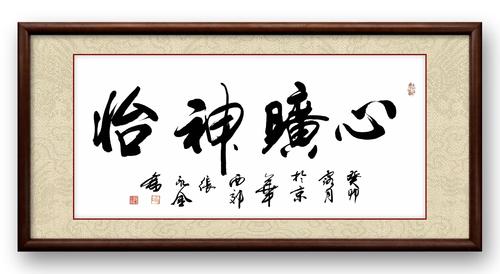 心曠神怡
癸卯歲月於京華西郊張永金書